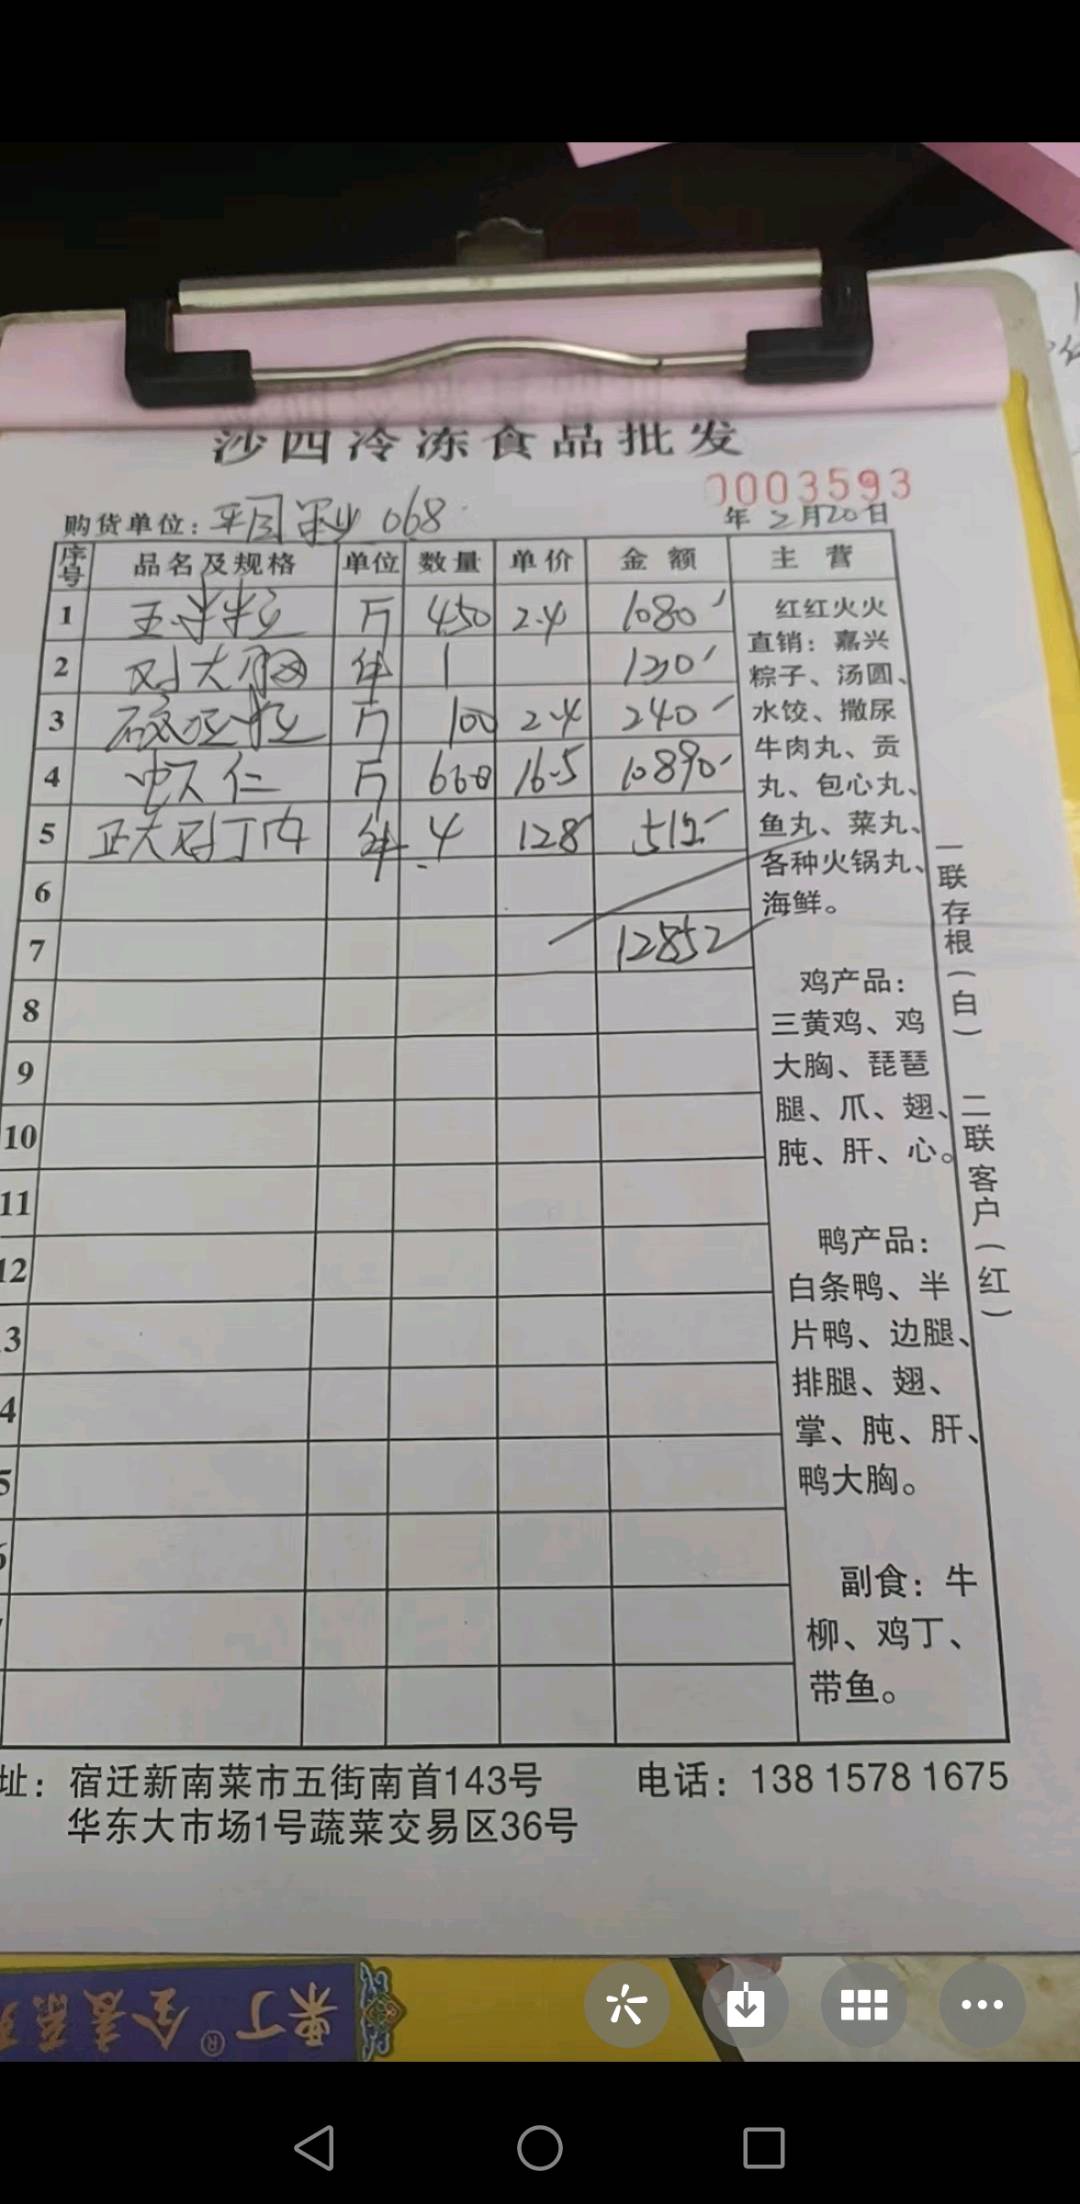 沙四冷冻食品批发
0003593
购货单位: 平 068
年 2月20日
序号 品名及规格 单位 数量 单价 金额 主营
1 玉米粒 斤 450 2.4 1080
2 大胸 件 1 130
3 粒 斤 100 2.4 240
4 虾仁 斤 660 16.5 10890
5 正大鸡丁肉 件 4 128 512
6
7 12852
8
9
10
11
12
3
4
5
6
红红火火
直销：嘉兴
粽子、汤圆、
水饺、撒尿
牛肉丸、贡
丸、包心丸、
鱼丸、菜丸、
各种火锅丸、
海鲜。
鸡产品：
三黄鸡、鸡
大胸、琵琶
腿、爪、翅、
肫、肝、心。
鸭产品：
白条鸭、半
片鸭、边腿、
排腿、翅、
掌、肫、肝、
鸭大胸。
副食：牛
柳、鸡丁、
带鱼。
一联存根（白） 二联客户（红）
址：宿迁新南菜市五街南首143号 电话：138 1578 1675
华东大市场1号蔬菜交易区36号
果丁®全